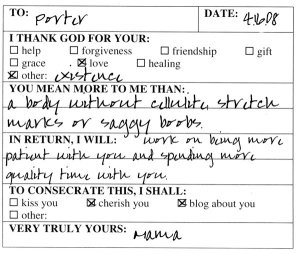 TO: Porter DATE: 4.16.08
I THANK GOD FOR YOUR:
☐ help ☐ forgiveness ☐ friendship ☐ gift
☐ grace ☒ love ☐ healing
☒ other: existence
YOU MEAN MORE TO ME THAN:
a body without cellulite, stretch
marks or saggy boobs.
IN RETURN, I WILL: work on being more
patient with you and spending more
quality time with you.
TO CONSECRATE THIS, I SHALL:
☐ kiss you ☒ cherish you ☒ blog about you
☐ other:
VERY TRULY YOURS: Mama